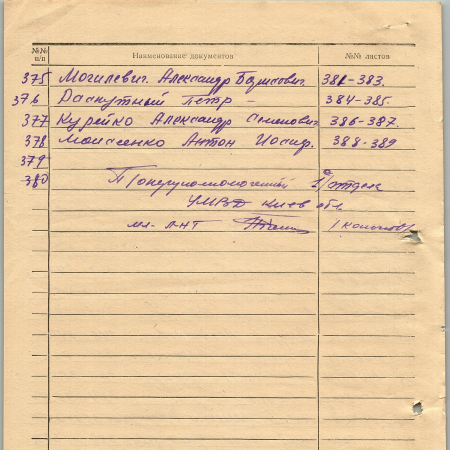 №№ п/п Наименование документов №№ листов
375 Могилевич Александр Борисович 381-383.
376 Распутный Петр — 384-385.
377 Курейко Александр Семенович 386-387.
378 Моисеенко Антон Иосиф. 388-389
379
380 2/отдела
УМВД Киев обл.
мл. л-нт